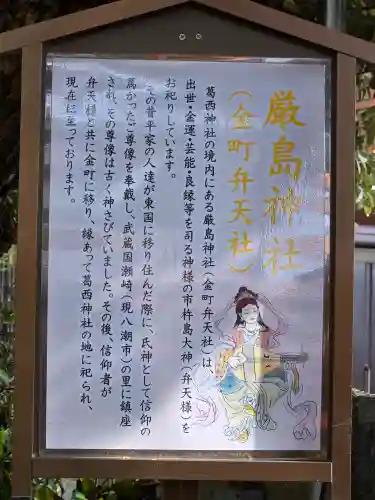 厳島神社
（金町弁天社）
葛西神社の境内にある厳島神社（金町弁天社）は、
出世・金運・芸能・良縁等を司る神様の市杵島大神（弁天様）を
お祀りしています。
その昔平家の人達が東国に移り住んだ際に、氏神として信仰の
篤かったご尊像を奉戴し、武蔵国瀬崎（現八潮市）の里に鎮座
され、その尊像は古く神さびていました。その後、信仰者が
弁天様と共に金町に移り、縁あって葛西神社の地に祀られ、
現在に至っております。